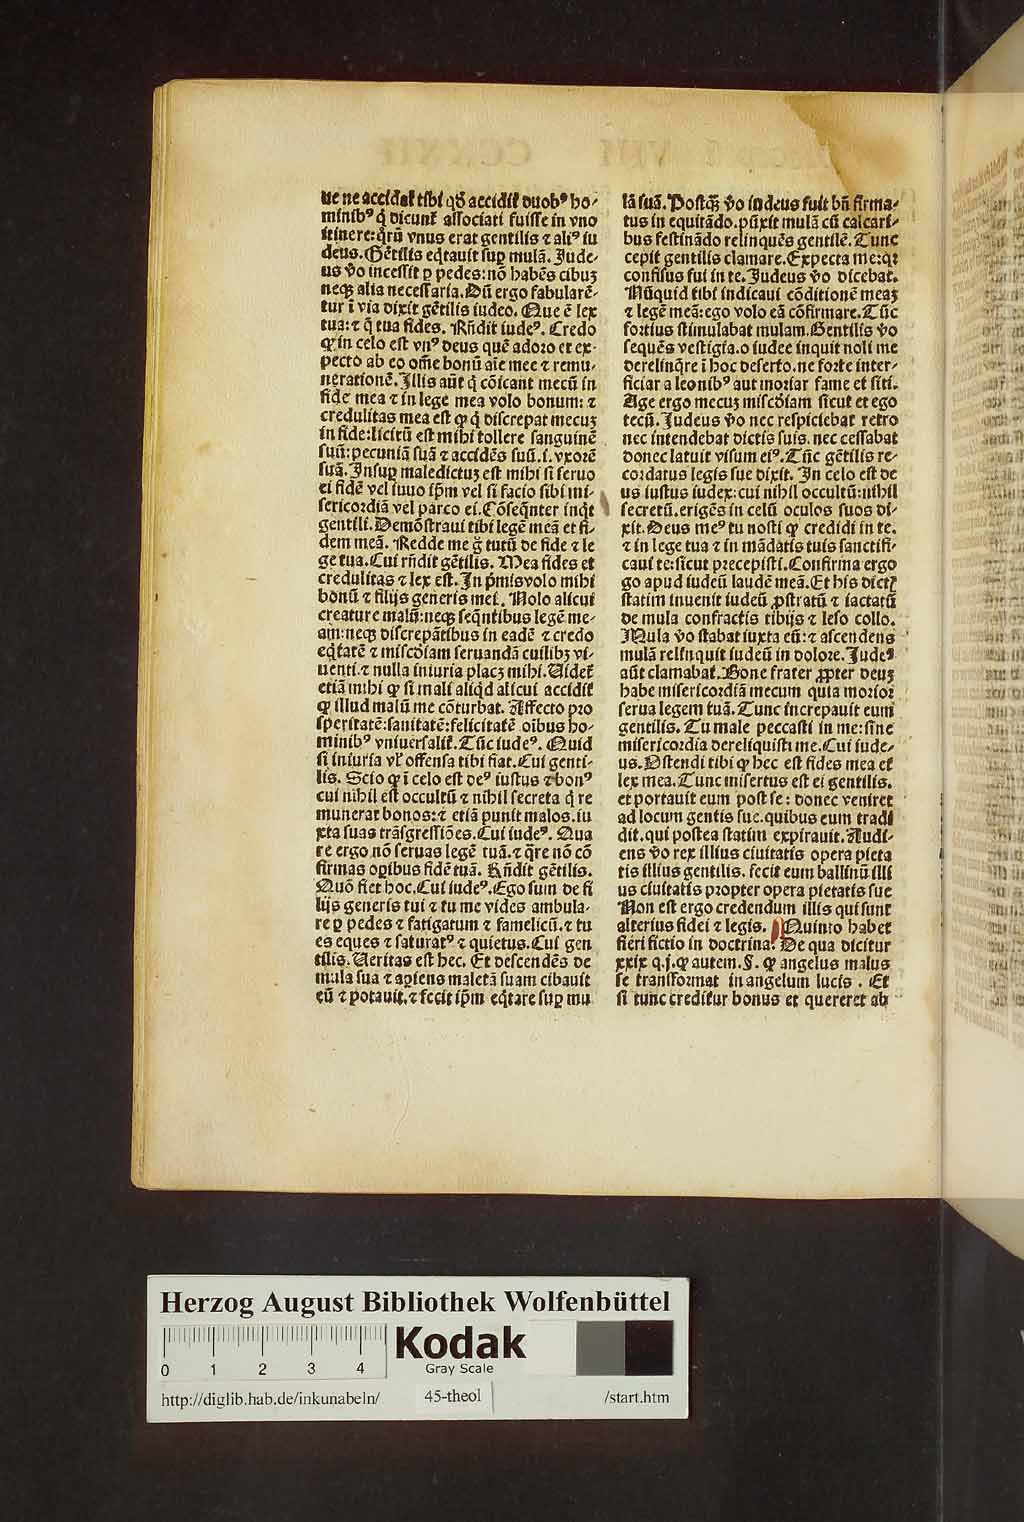 ue ne accidat tibi qđ accidit duobꝰ ho-
minibꝰ q̇ dicunt᷑ associati fuisse in vno
itinere: qͦrū vnus erat gentilis ⁊ aliꝰ iu
deus. Gētilis eq̇tauit suꝑ mulā. Jude-
us ꝟo incessit ꝑ pedes: nō habēs cibuꝫ
neqꝫ alia necessaria. Dū ergo fabularē-
tur ī via dixit gētilis iudeo. Que ē lex
tua: ⁊ q̄ tua fides. Rn̄dit iudeꝰ. Credo
ꝙ in celo est vnꝰ deus quē adoro et ex-
pecto ab eo om̄e bonū aīe mee ⁊ remu-
nerationē. Illis aūt q̇ cōicant mecū in
fide mea ⁊ in lege mea volo bonum: ⁊
credulitas mea est ꝙ q̇ discrepat mecuꝫ
in fide: licitū est mihi tollere sanguinē
suū: pecuniā suā ⁊ accidēs suū .i. vxorē
suā. Insuꝑ maledictuꝫ est mihi si seruo
ei fidē vel iuuo ip̄m vel si facio sibi mi-
sericordiā vel parco ei. Cōseqn̄ter inq̇t
gentili. Demōstraui tibi legē meā et fi-
dem meā. Redde me g̊ tutū de fide ⁊ le
ge tua. Cui rn̄dit gētilis. Mea fides et
credulitas ⁊ lex est. In p̄mis volo mihi
bonū ⁊ filijs generis mei. Nolo alicui
creature malū: neqꝫ seqn̄tibus legē me-
am: neqꝫ discrepātibus in eadē ⁊ credo
eq̇tatē ⁊ misc̄diam seruandā cuilibꝫ vi-
uenti. ⁊ nulla iniuria placꝫ mihi. Uidet᷑
etiā mihi ꝙ si mali aliq̇d alicui accidit
ꝙ illud malū me cōturbat. Affecto pro
speritatē: sanitatē: felicitatē oībus ho-
minibꝰ vniuersalit᷑. Tūc iudeꝰ. Quid
si iniuria vl᷑ offensa tibi fiat. Cui genti-
lis. Scio ꝙ ī celo est deꝰ iustus ⁊ bonꝰ
cui nihil est occultū ⁊ nihil secreta q̇ re
munerat bonos: ⁊ etiā punit malos. iu
xta suas trāsgressiōes. Cui iudeꝰ. Qua
re ergo nō seruas legē tuā. ⁊ q̄re nō cō
firmas oꝑibus fidē tuā. Rn̄dit gētilis.
Quō fiet hoc. Cui iudeꝰ. Ego sum de fi
lijs generis tui ⁊ tu me vides ambula-
re ꝑ pedes ⁊ fatigatum ⁊ famelicū. ⁊ tu
es eques ⁊ saturatꝰ ⁊ quietus. Cui gen
tilis. Ueritas est hec. Et descendēs de
mula sua ⁊ aꝑiens maletā suam cibauit
eū ⁊ potauit. ⁊ fecit ip̄m eq̇tare suꝑ mu
lā suā. Postqꝫ ꝟo iudeus fuit bn̄ firma-
tus in equitādo. pūxit mulā cū calcari-
bus festinādo relinquēs gentilē. Tunc
cepit gentilis clamare. Expecta me: qꝛ
confisus fui in te. Judeus ꝟo dicebat.
Nūquid tibi indicaui cōditionē meaꝫ
⁊ legē meā: ego volo eā cōfirmare. Tūc
fortius stimulabat mulam. Gentilis ꝟo
sequēs vestigia. o iudee inquit noli me
derelinq̄re ī hoc deserto. ne forte inter-
ficiar a leonibꝰ aut moriar fame et siti.
Age ergo mecuꝫ misc̄diam sicut et ego
tecū. Judeus ꝟo nec respiciebat retro
nec intendebat dictis suis. nec cessabat
donec latuit visum eiꝰ. Tūc gētilis re-
cordatus legis sue dixit. In celo est de
us iustus iudex: cui nihil occultū: nihil
secretū. erigēs in celū oculos suos di-
xit. Deus meꝰ tu nosti ꝙ credidi in te.
⁊ in lege tua ⁊ in mādatis tuis sanctifi-
caui te: sicut precepisti. Confirma ergo
go apud iudeū laudē meā. Et his dictꝭ
statim inuenit iudeū ꝓstratū ⁊ iactatū
de mula confractis tibijs ⁊ leso collo.
Mula ꝟo stabat iuxta eū: ⁊ ascendens
mulā relinquit iudeū in dolore. Judeꝰ
aūt clamabat. Bone frater ꝓpter deuꝫ
habe misericordiā mecum quia morior
serua legem tuā. Tunc increpauit eum
gentilis. Tu male peccasti in me: sine
misericordia dereliquisti me. Cui iude-
us. Ostendi tibi ꝙ hec est fides mea et
lex mea. Tunc misertus est ei gentilis.
et portauit eum post se: donec veniret
ad locum gentis sue. quibus eum tradi
dit. qui postea statim expirauit. Audi-
ens ꝟo rex illius ciuitatis opera pieta
tis illius gentilis. fecit eum ballinū illi
us ciuitatis propter opera pietatis sue
Non est ergo credendum illis qui sunt
alterius fidei ⁊ legis. Quinto habet
fieri fictio in doctrina. De qua dicitur
xxix q.j. ꝙ autem. §. ꝙ angelus malus
se transformat in angelum lucis. Et
si tunc creditur bonus et quereret ab
Herzog August Bibliothek Wolfenbüttel
0 1 2 3 4
Kodak
Gray Scale
http://diglib.hab.de/inkunabeln/ 45-theol /start.htm